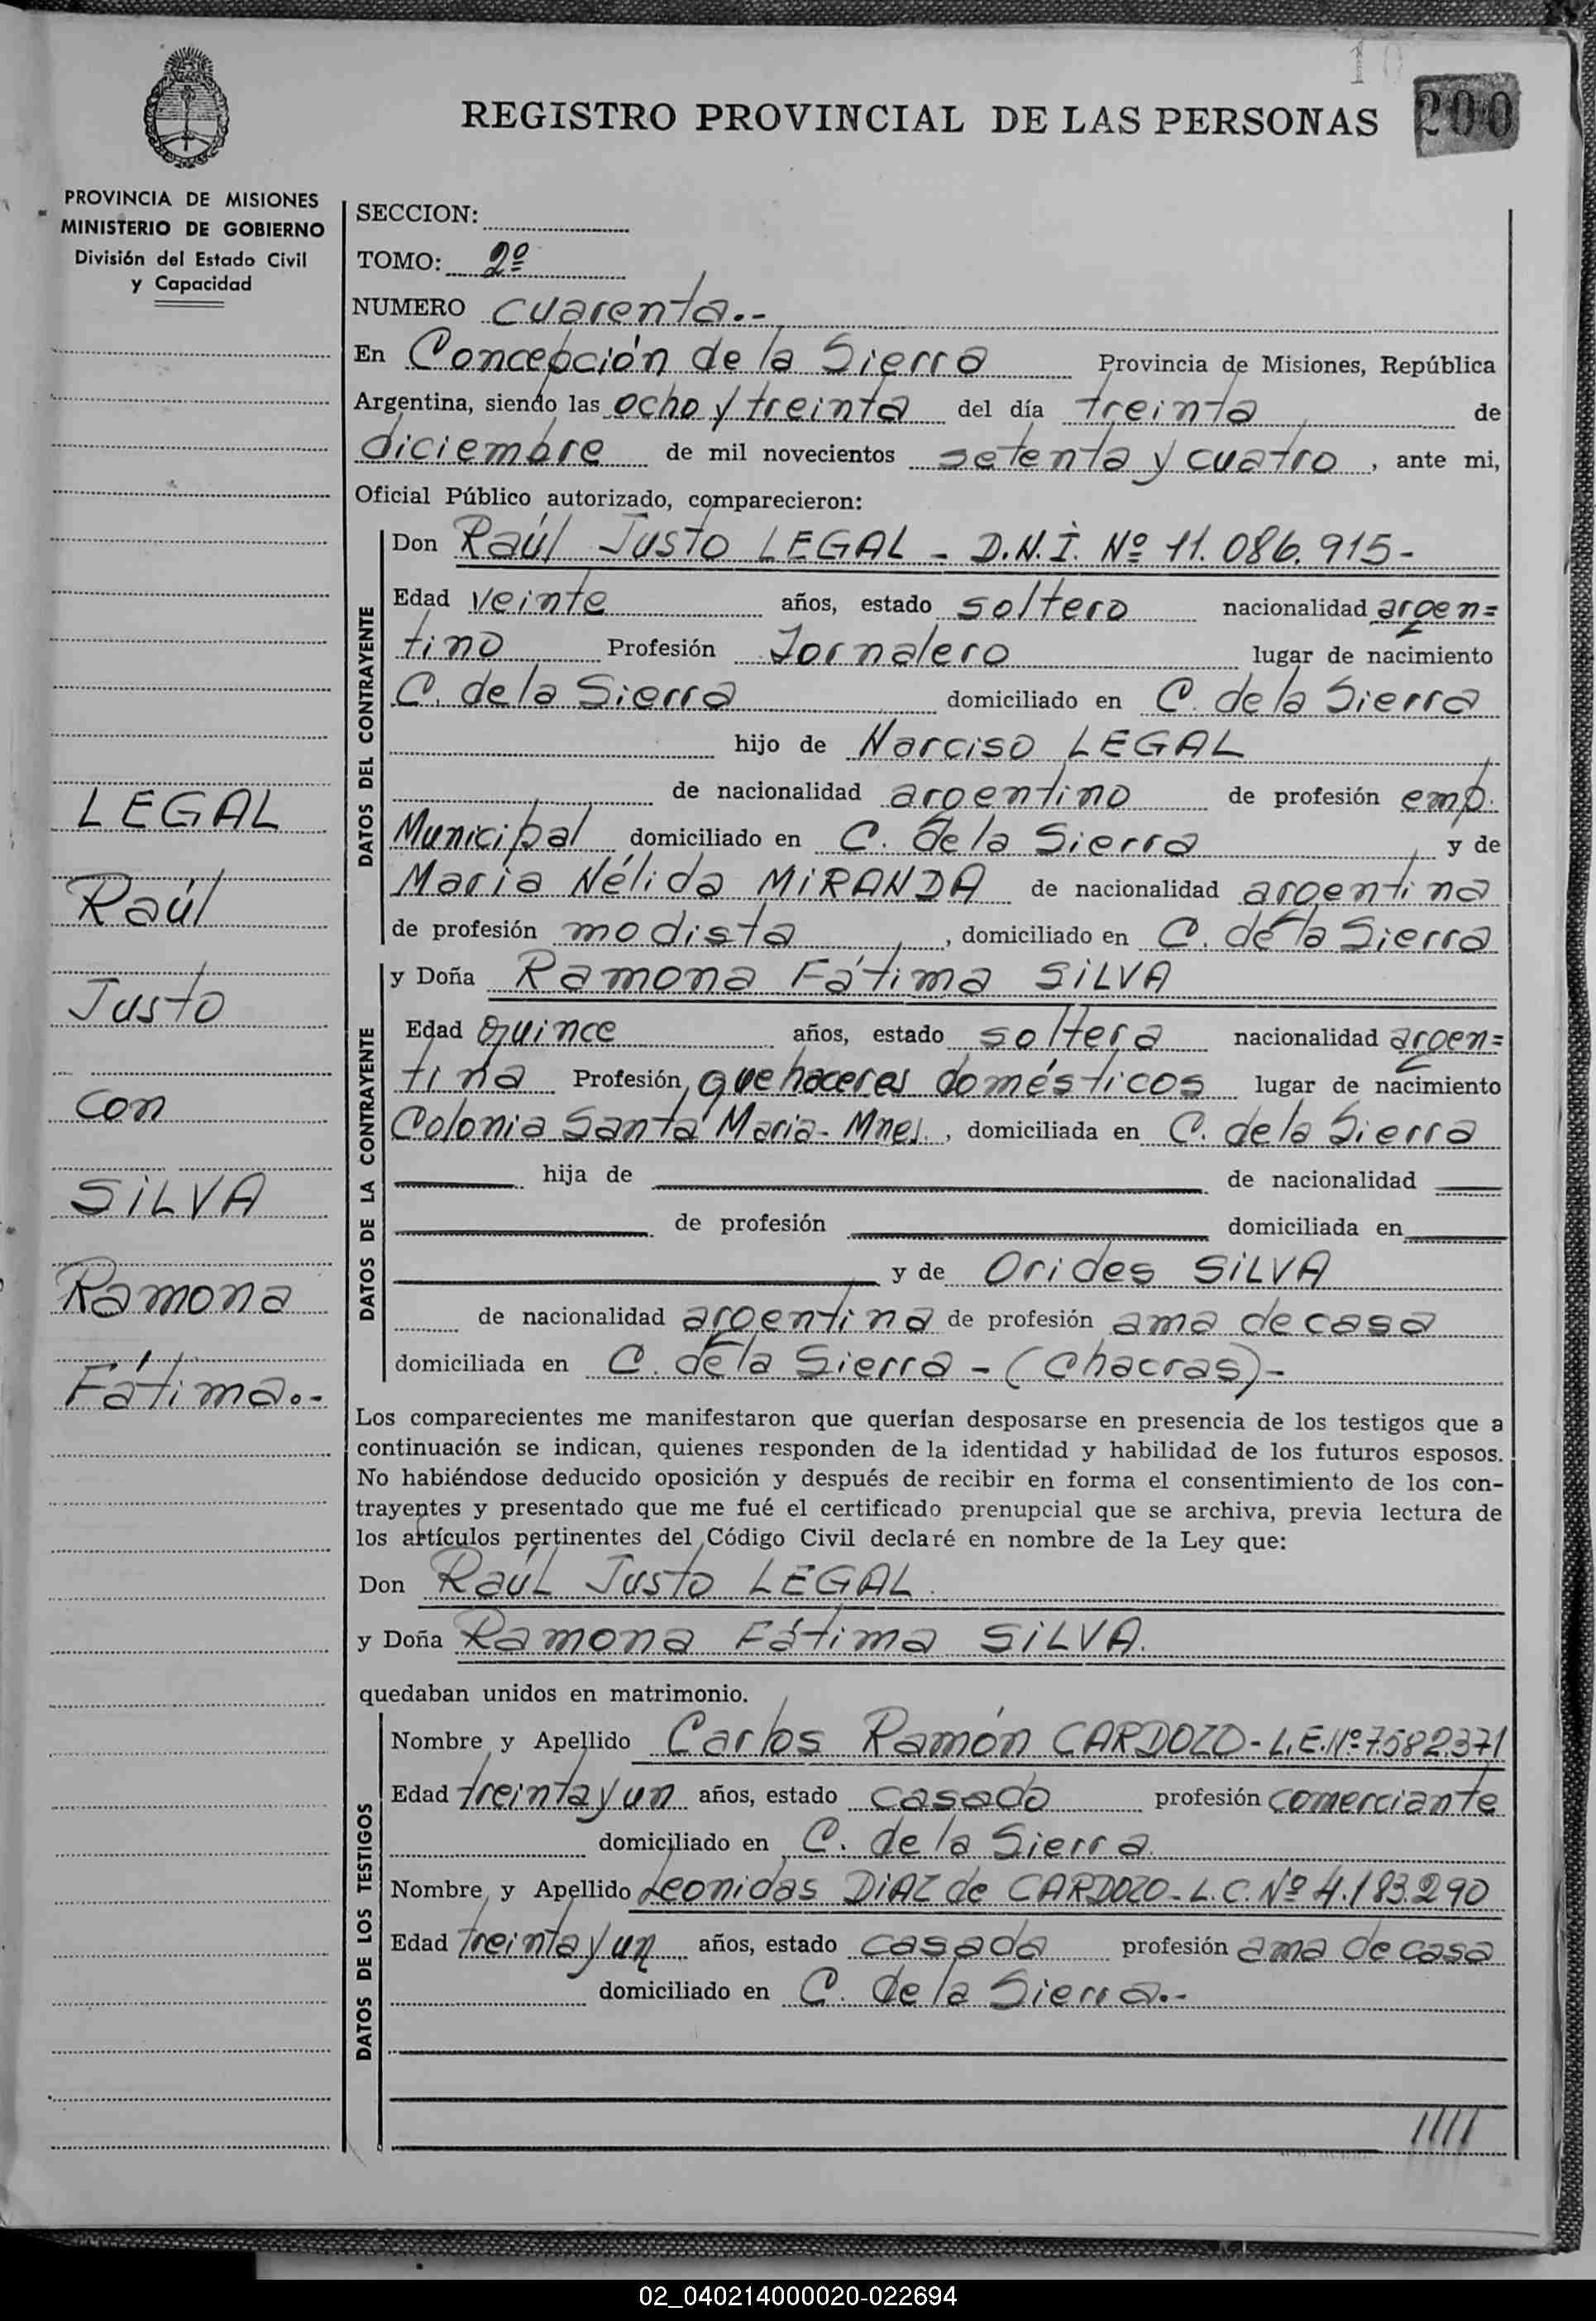 REGISTRO PROVINCIAL DE LAS PERSONAS
200
PROVINCIA DE MISIONES
MINISTERIO DE GOBIERNO
División del Estado Civil
y Capacidad
LEGAL
Raúl
Justo
con
SILVA
Ramona
Fátima.-
SECCION:
TOMO: 2º
NUMERO cuarenta.-
En Concepción de la Sierra Provincia de Misiones, República
Argentina, siendo las ocho y treinta del día treinta de
diciembre de mil novecientos setenta y cuatro, ante mi,
Oficial Público autorizado, comparecieron:
DATOS DEL CONTRAYENTE
Don Raúl Justo LEGAL - D.N.I. Nº 11.086.915-
Edad veinte años, estado soltero nacionalidad argen=
tino Profesión Jornalero lugar de nacimiento
C. de la Sierra domiciliado en C. de la Sierra
hijo de Narciso LEGAL
de nacionalidad argentino de profesión emp.
Municipal domiciliado en C. de la Sierra y de
Maria Nélida MIRANDA de nacionalidad argentina
de profesión modista, domiciliado en C. de la Sierra
DATOS DE LA CONTRAYENTE
y Doña Ramona Fátima SILVA
Edad quince años, estado soltera nacionalidad argen=
tina Profesión quehaceres domésticos lugar de nacimiento
Colonia Santa Maria- Mnes., domiciliada en C. de la Sierra
hija de de nacionalidad
de profesión domiciliada en
y de Orides SILVA
de nacionalidad argentina de profesión ama de casa
domiciliada en C. de la Sierra - (Chacras)-
Los comparecientes me manifestaron que querían desposarse en presencia de los testigos que a
continuación se indican, quienes responden de la identidad y habilidad de los futuros esposos.
No habiéndose deducido oposición y después de recibir en forma el consentimiento de los con-
trayentes y presentado que me fué el certificado prenupcial que se archiva, previa lectura de
los artículos pertinentes del Código Civil declaré en nombre de la Ley que:
Don Raúl Justo LEGAL.
y Doña Ramona Fátima SILVA.
quedaban unidos en matrimonio.
DATOS DE LOS TESTIGOS
Nombre y Apellido Carlos Ramón CARDOZO- L.E.Nº 7.582.371
Edad treinta y un años, estado casado profesión comerciante
domiciliado en C. de la Sierra.
Nombre y Apellido Leonidas DIAZ de CARDOZO- L.C. Nº 4.183.290
Edad treinta y un años, estado casada profesión ama de casa
domiciliado en C. de la Sierra.-
////
02_040214000020-022694